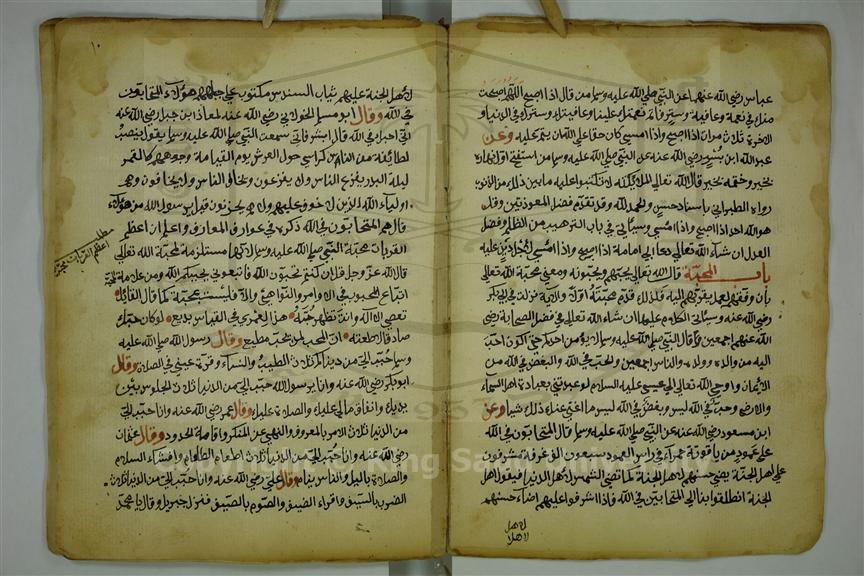 عباس رضي الله عنهما عن النبي صلي الله عليه وسلم من قال اذا اصبح اللهم اصبحت
منك في نعمة وعافية وستر فاتم نعمتك علينا وعافيتك وسترك في الدنيا و
الاخرة ثلاث مرات اذا اصبح واذا امسي كان حقا علي الله ان يتم عليه وعن
عبد الله ابن بسر رضي الله عنه عن النبي صلي الله عليه وسلم من استفتح اول نهاره
بخير وختمه بخير قال الله تعالي لملائكته لا تكتبوا عليه ما بين ذلك من الذنوب
رواه الطبراني باسناد حسن والحمد لله وقد تقدم فضل المعوذتين وقل
هو الله احد اذا اصبح واذا امسي وسياتي في باب الترهيب من الظلم وفضل
العدل ان شاء الله تعالي دعا ابي امامة اذا اصبح واذا امسي
باب المحبة قال الله تعالي يحبهم ويحبونه ومعني محبة الله تعالي
بان وفقهم لعمل يقربهم اليه فلذلك قدم محبته اولا ولاية نزلت في ابي بكر
رضي الله عنه وسياتي الكلام عليها ان شاء الله تعالي في فضل الصحابة رضي
الله عنهم اجمعين وقال النبي صلي الله عليه وسلم لا يؤمن احدكم حتي اكون احب
اليه من والده وولده والناس اجمعين والحب في الله والبغض في الله من
الايمان واوحي الله تعالي الي عيسي عليه السلام لو عبدتني بعبادة اهل السماء
والارض وحب في الله ليس وبغض في الله ليس ما اغني عنك ذلك شيا وعن
ابن مسعود رضي الله عنه عن النبي صلي الله عليه وسلم قال المتحابون في الله
علي عمود من ياقوتة حمراء في راس العمود سبعون الف غرفة مشرفون
علي اهل الجنة يضي حسنهم لاهل الجنة كما تضي الشمس لاهل الدنيا فيقول اهل
الجنة انطلقوا بنا الي المتحابين في الله فاذا اشرفوا عليهم اضاء حسنهم
لاهل
لاهل الجنة عليهم ثياب السندس مكتوب علي جباههم هؤلاء المتحابون
في الله وقال ابو مسلم الخولاني رضي الله عنه لمعاذ ابن جبل رضي الله عنه
اني احبك في الله قال ابشر فاني سمعت النبي صلي الله عليه وسلم يقول ينصب
لطائفة من الناس كراسي حول العرش يوم القيامة وجوههم كالقمر
ليلة البدر يفزع الناس ولا يفزعون ويخاف الناس ولا يخافون وهم
اولياء الله الذين لا خوف عليهم ولا هم يحزنون قيل يا رسول الله من هؤلاء
قال هم المتحابون في الله ذكره في عوارف المعارف واعلم ان اعظم
القربات محبة النبي صلي الله عليه وسلم لانها مستلزمة لمحبة الله تعالي
قال الله عز وجل قل ان كنتم تحبون الله فاتبعوني يحببكم الله ومن علامة المحبة
اتباع المحبوب في الاوامر والنواهي والا فليست محبة كما قال القائل
تعصي الاله وانت تظهر حبه هذا لعمري في القياس بديع لو كان حبك
صادقا لاطعته ان المحب لمن يحب مطيع وقال رسول الله صلي الله عليه
وسلم حبب الي من دنياكم ثلاث الطيب والنساء وقرة عيني في الصلاة وقال
ابو بكر رضي الله عنه وانا يا رسول الله حبب الي من الدنيا ثلاث الجلوس بين
يديك وانفاق مالي عليك والصلاة عليك وقال عمر رضي الله عنه وانا حبب الي
من الدنيا ثلاث الامر بالمعروف والنهي عن المنكر واقامة الحدود وقال عثمان
رضي الله عنه وانا حبب الي من الدنيا ثلاث اطعام الطعام وافشاء السلام
والصلاة بالليل والناس نيام وقال علي رضي الله عنه وانا حبب الي من الدنيا ثلاث
الضرب بالسيف واقراء الضيف والصوم بالصيف فنزل جبريل وقال يا محمد
مطلب
اعظم القربات محبته
Copyright © King Saud University